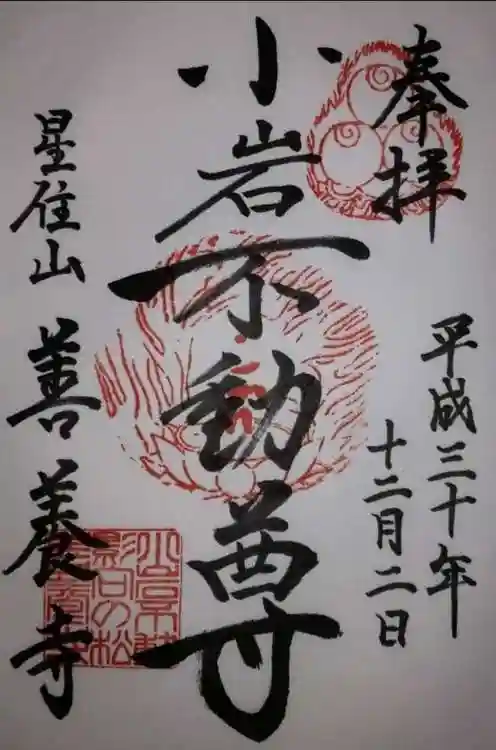 奉拝
平成三十年
十二月二日
小岩不動尊
星住山
善養寺
影向の松